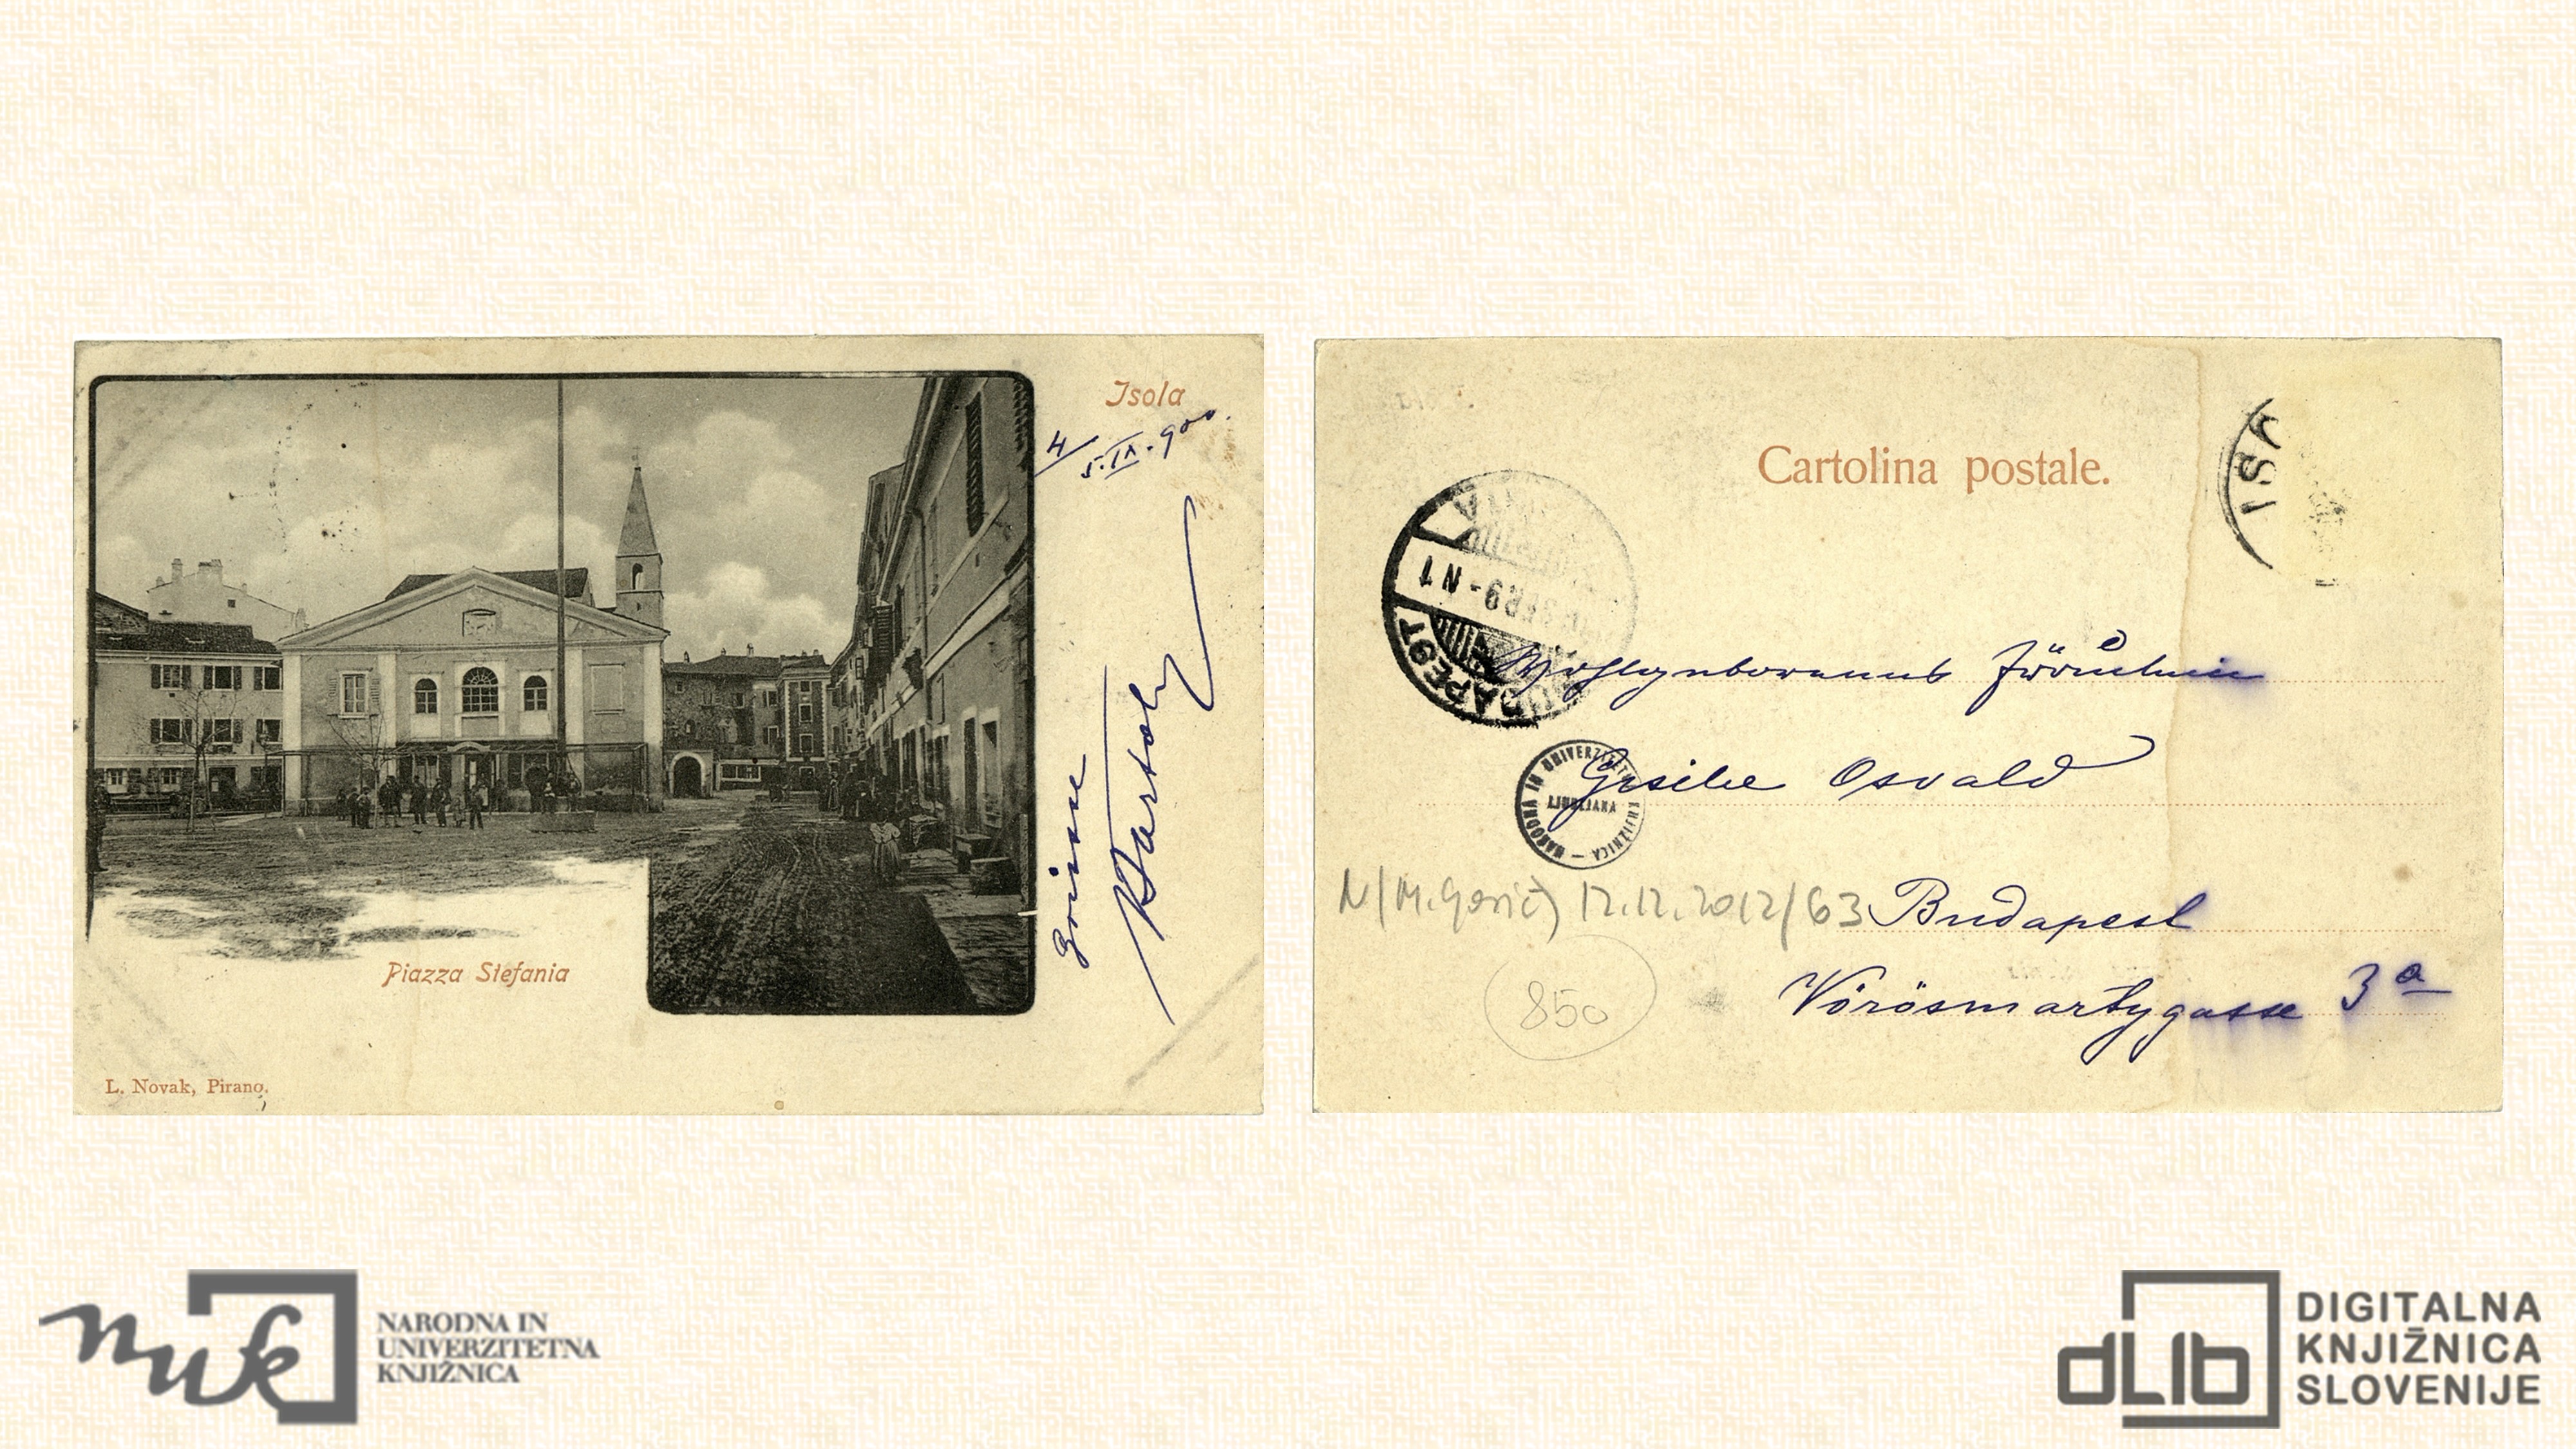 Isola
4/5.IX.900.
Grüsse
Piazza Stefania
L. Novak, Pirano.
Cartolina postale.
ISO
BUDAPEST
N 1
NARODNA IN UNIVERZITETNA KNJIŽNICA –
LJUBLJANA
Osvald
N/(M. Gorić) 12.12.2012/63
Budapest
Vörösmartygasse 3a
850
nuk
NARODNA IN
UNIVERZITETNA
KNJIŽNICA
dLib
DIGITALNA
KNJIŽNICA
SLOVENIJE